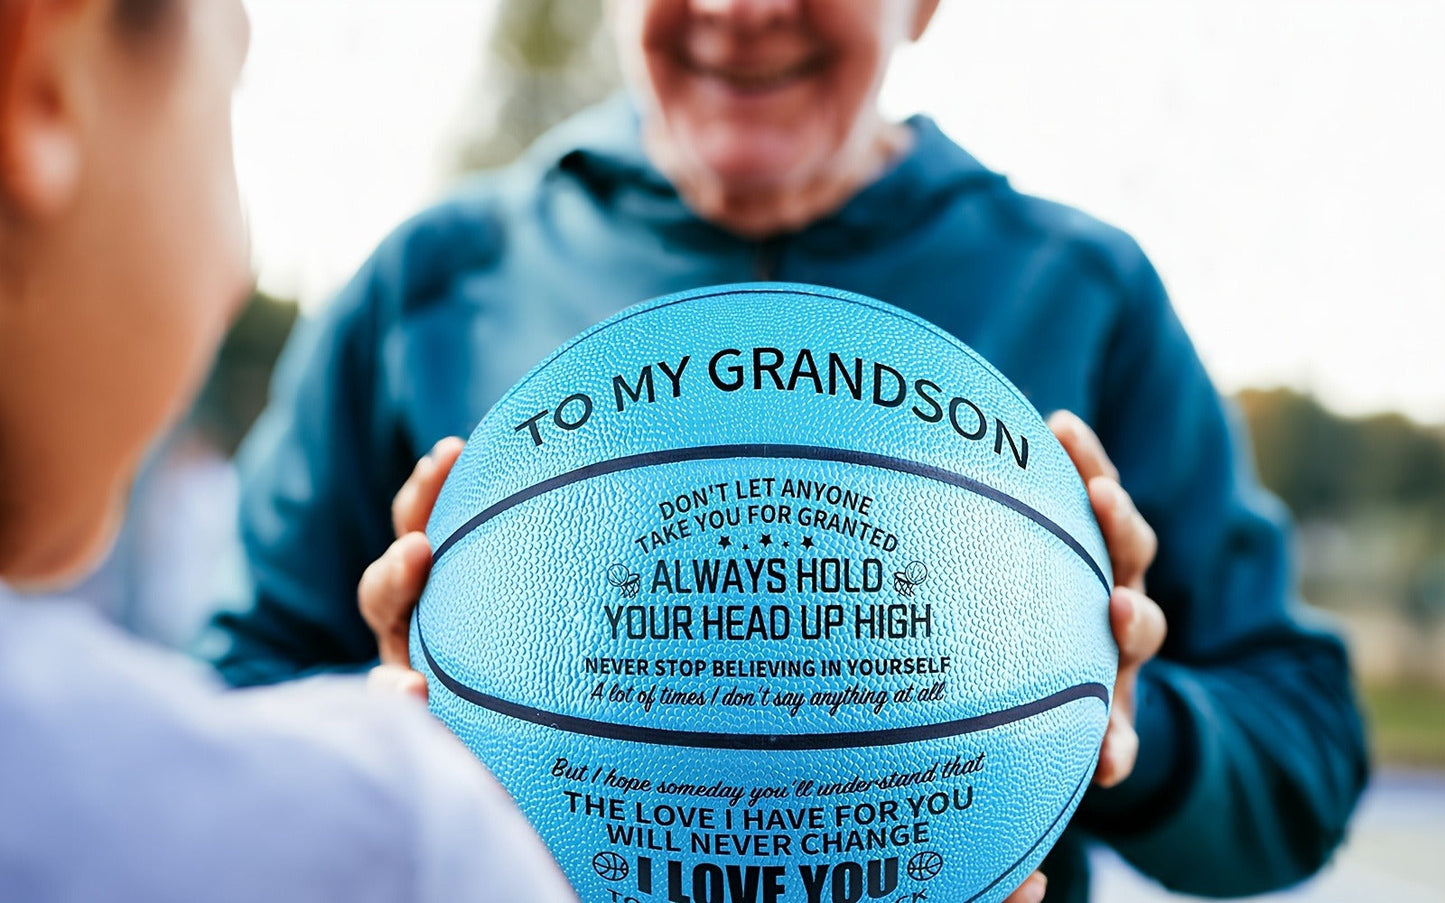 TO MY GRANDSON
DON'T LET ANYONE
TAKE YOU FOR GRANTED
ALWAYS HOLD
YOUR HEAD UP HIGH
NEVER STOP BELIEVING IN YOURSELF
A lot of times I don't say anything at all
But I hope someday you'll understand that
THE LOVE I HAVE FOR YOU
WILL NEVER CHANGE
I LOVE YOU